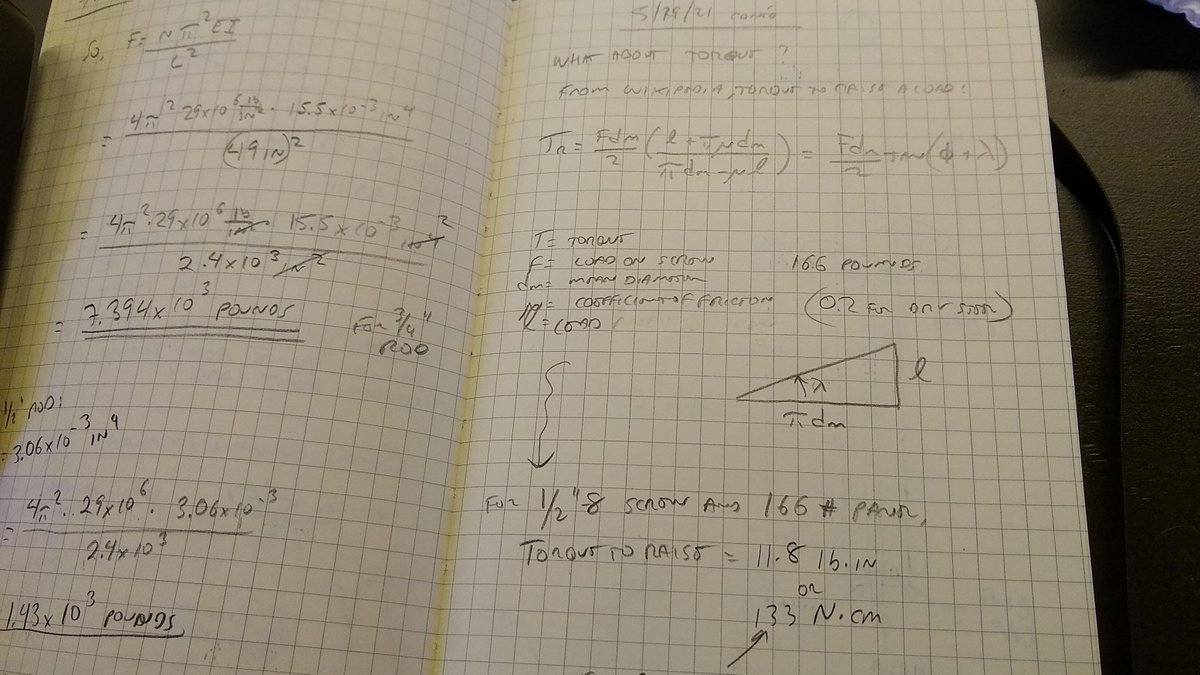 So, F = Nπ²EI / L²
= 4π² 29x10⁶ lb/IN² · 15.5x10⁻³ IN⁴ / (49 IN)²
= 4π²·29x10⁶ lb/IN² · 15.5x10⁻³ IN⁴ ² / 2.4x10³ IN²
= 7.394x10³ POUNDS
FOR 3/4" ROD
1/2" ROD:
= 3.06x10⁻³ IN⁴
= 4π²· 29x10⁶ · 3.06x10⁻³ / 2.4x10³
1.43x10³ POUNDS
5/29/21 CONT'D
WHAT ABOUT TORQUE?
FROM WIKIPEDIA, TORQUE TO RAISE A LOAD:
T_R = Fdm/2 (l + πμdm / πdm - μl) = Fdm/2 tan(φ+λ)
T = TORQUE
F = LOAD ON SCREW 166 POUNDS
dm = MEAN DIAMETER
μ = COEFFICIENT OF FRICTION (0.2 FOR DRY STEEL)
l = LEAD
λ
l
πdm
FOR 1/2"-8 SCREW AND 166 # PANEL,
TORQUE TO RAISE = 11.8 lb.IN
OR
133 N.cm